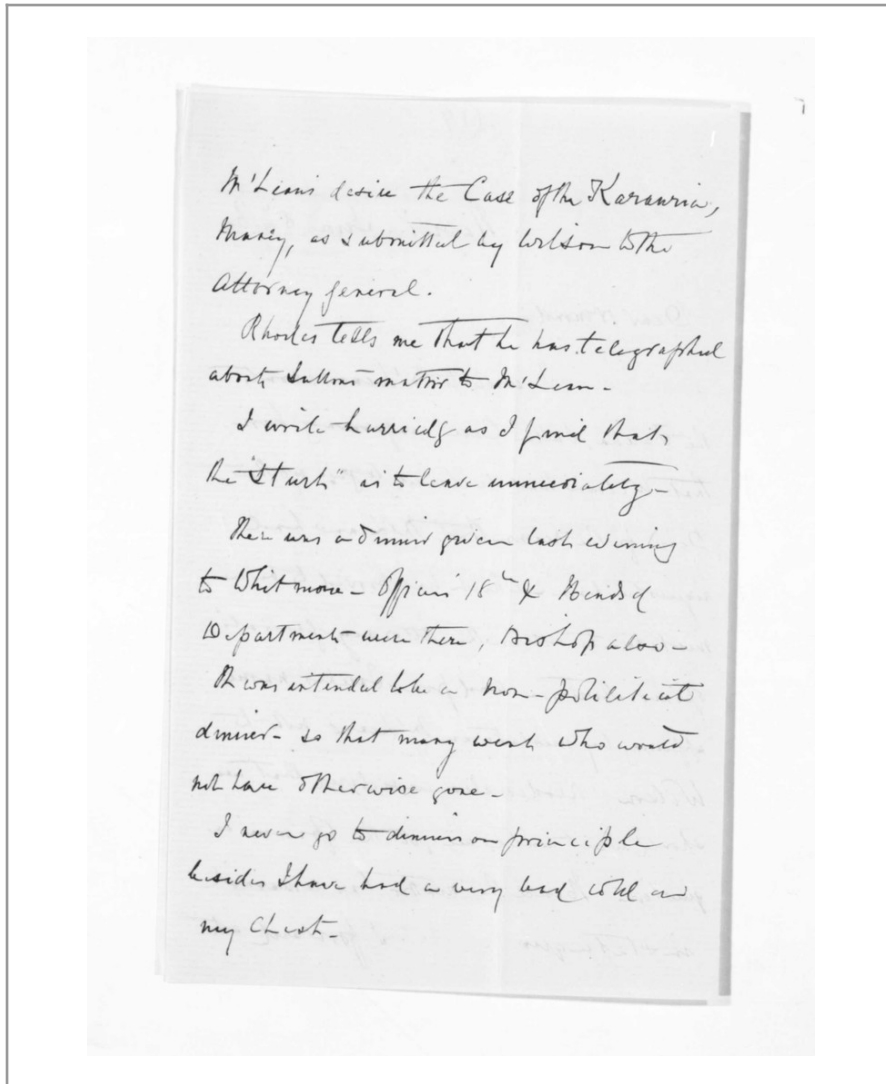 McLean's desire the Case of the Karauria,
Maney, as submitted by Wilson to the
Attorney general.
Rhodes tells me that he has telegraphed
about Suttons matter to McLean -
I write hurriedly as I find that
the "Sturt" is to leave immediately -
There was a dinner given last evening
to Whitmore - Officers 18th & Heads of
Departments were there, Bishop also -
It was intended to be a non-political
dinner - so that many went who would
not have otherwise gone -
I never go to dinners on principle
besides I have had a very bad cold on
my Chest -